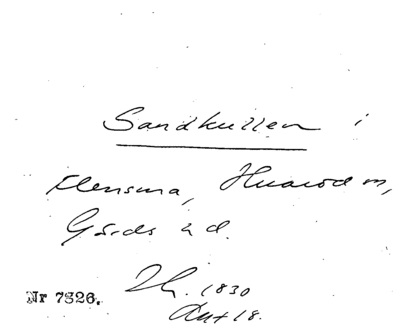 Sandkullen i
Elensma, Huarod sn,
Gärds hd.
Nr 7826.
1830